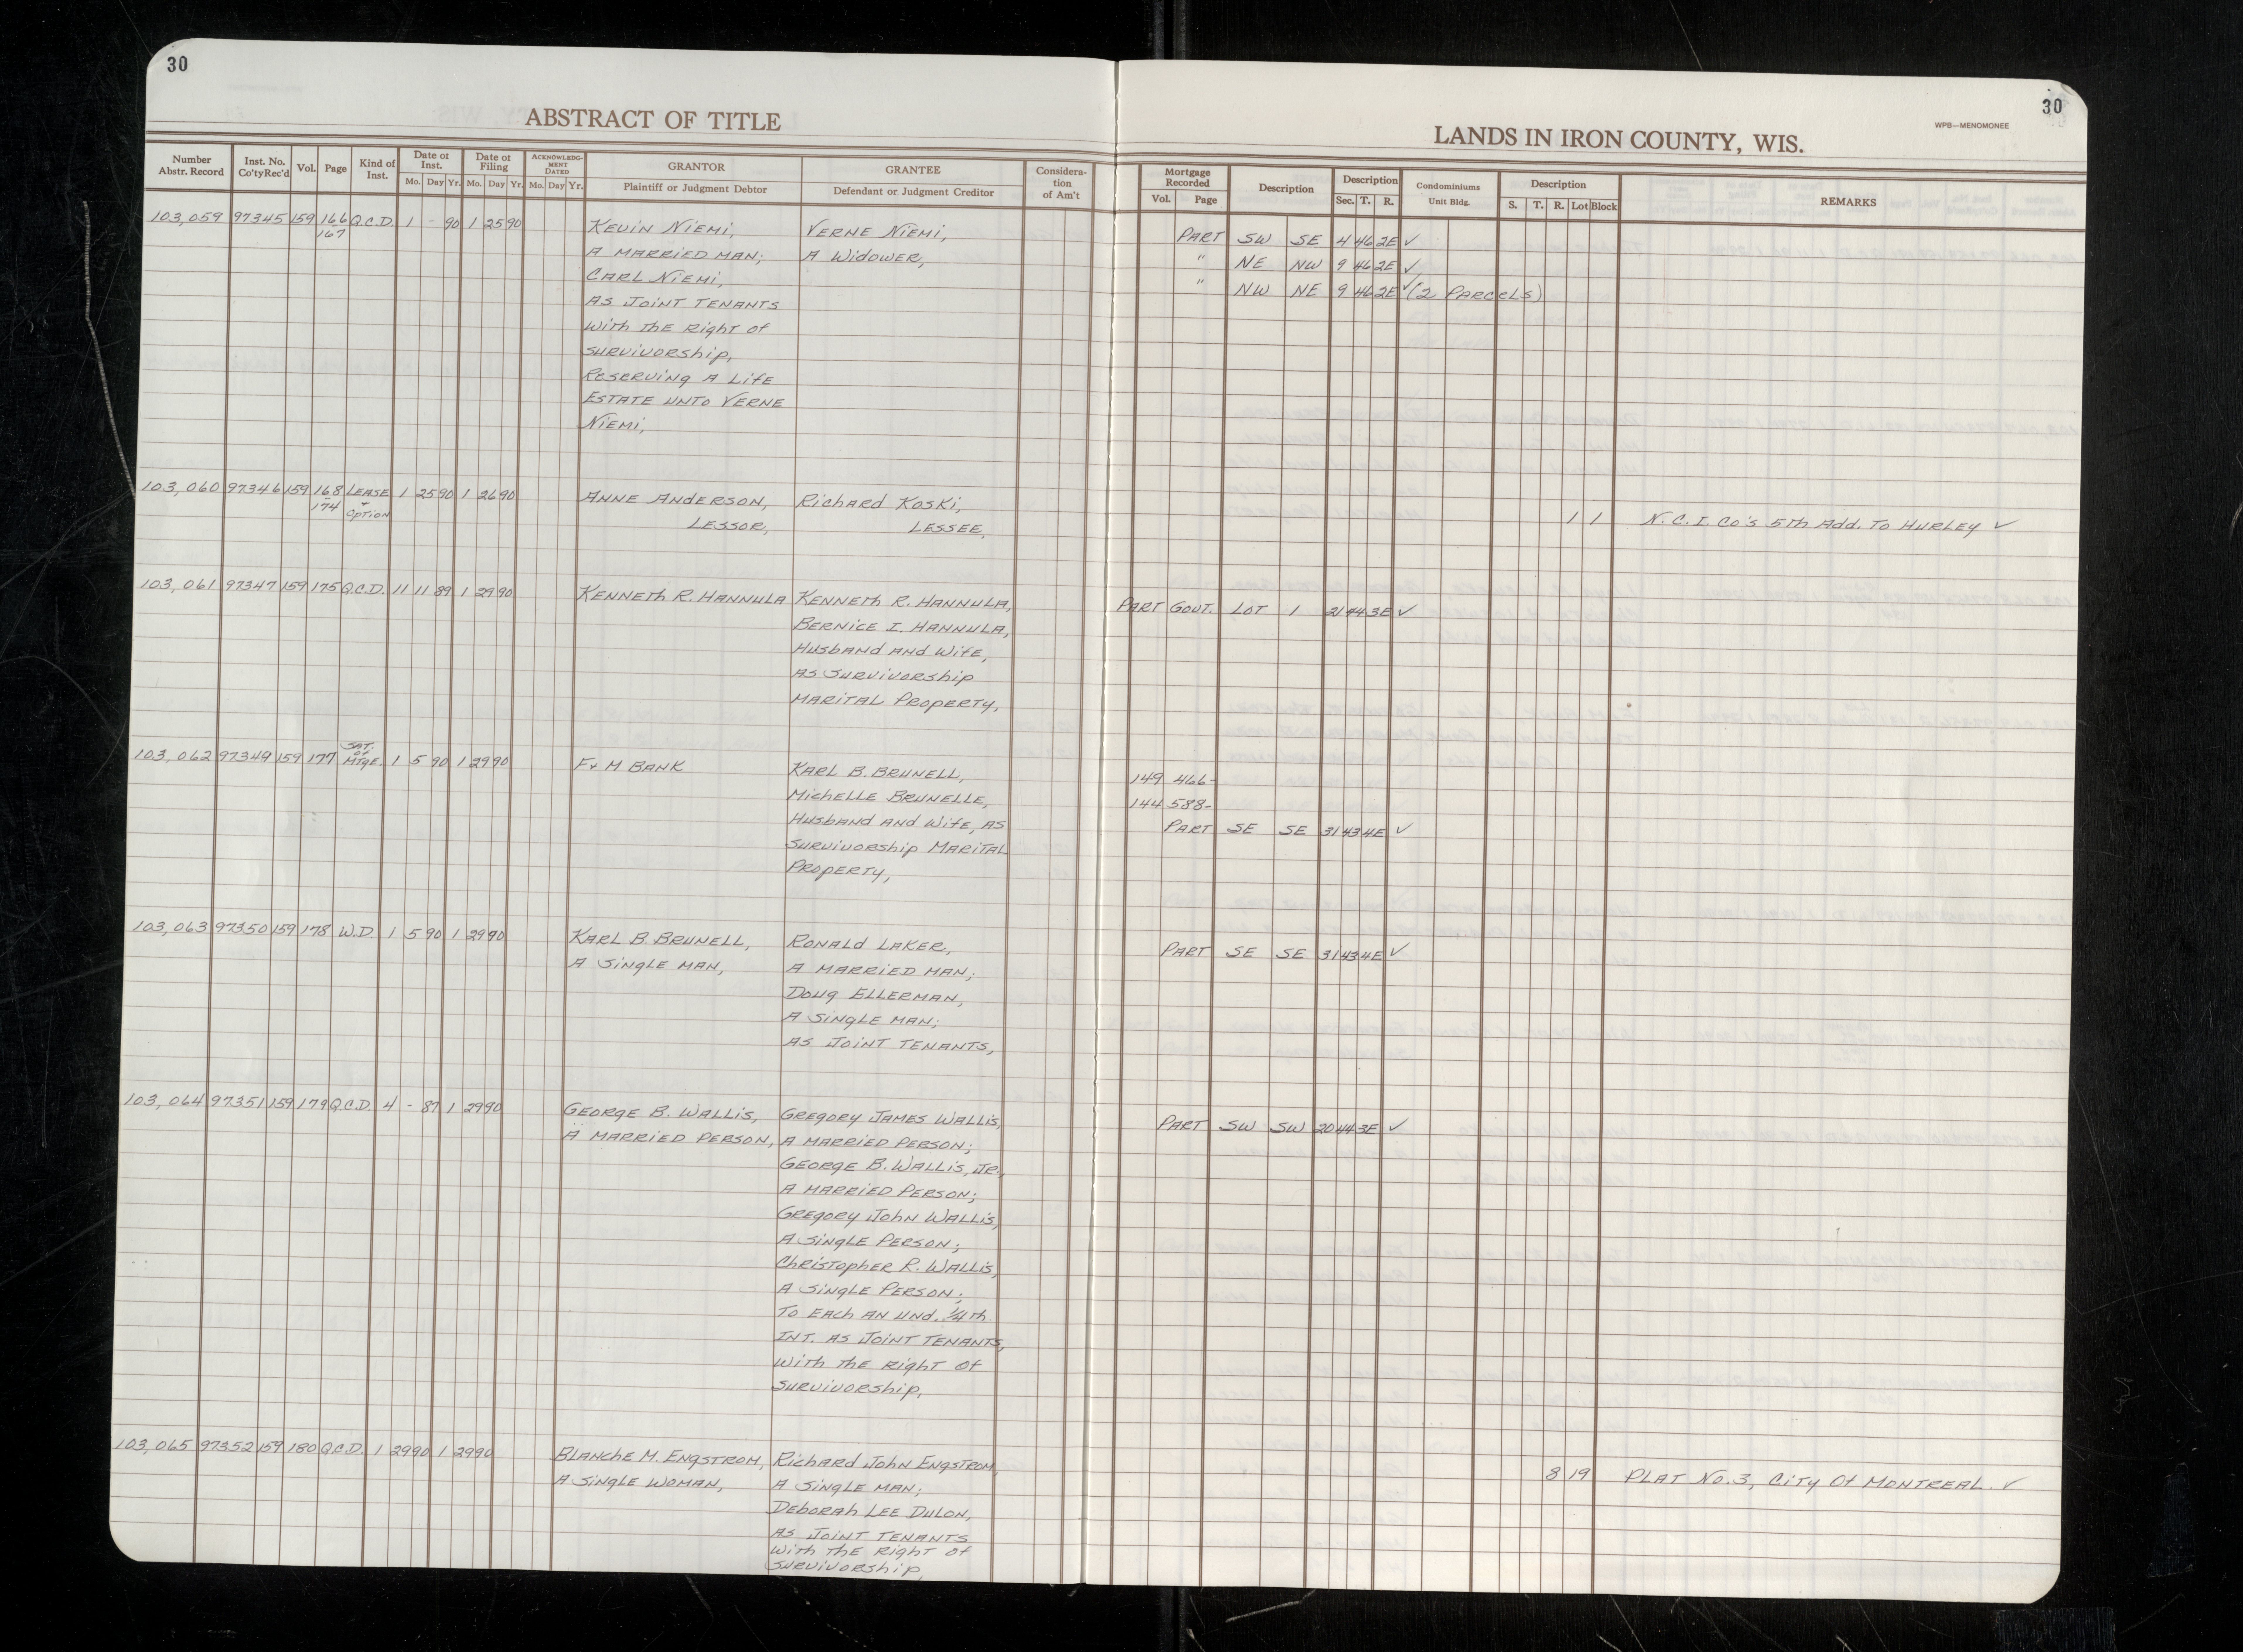 30
30
ABSTRACT OF TITLE
LANDS IN IRON COUNTY, WIS.
WPB—MENOMONEE
Number Abstr. Record | Inst. No. Co'ty Rec'd | Vol. | Page | Kind of Inst. | Date of Inst. Mo. Day Yr. | Date of Filing Mo. Day Yr. | ACKNOWLEDGMENT DATED Mo. Day Yr. | GRANTOR Plaintiff or Judgment Debtor | GRANTEE Defendant or Judgment Creditor | Consideration of Am't | Mortgage Recorded Vol. Page | Description | Description Sec. T. R. | Condominiums Unit Bldg. | Description S. T. R. Lot Block | REMARKS
103,059 97345 159 166 Q.C.D. 1 - 90 1 25 90 KEVIN NIEMI, VERNE NIEMI, PART SW SE 4 46 2E ✓
167 A MARRIED MAN; A WIDOWER, " NE NW 9 46 2E ✓
CARL NIEMI, " NW NE 9 46 2E ✓ (2 PARCELS)
AS JOINT TENANTS
WITH THE RIGHT OF
SURVIVORSHIP,
RESERVING A LIFE
ESTATE UNTO VERNE
NIEMI,
103,060 97346 159 168 LEASE 1 25 90 1 26 90 ANNE ANDERSON, RICHARD KOSKI,
174 + OPTION LESSOR, LESSEE, 1 1 N.C.I. CO'S 5TH ADD. TO HURLEY ✓
103,061 97347 159 175 Q.C.D. 11 11 89 1 29 90 KENNETH R. HANNULA KENNETH R. HANNULA, PART GOVT. LOT 1 21 44 3E ✓
BERNICE I. HANNULA,
HUSBAND AND WIFE,
AS SURVIVORSHIP
MARITAL PROPERTY,
103,062 97349 159 177 SAT. OF MTGE. 1 5 90 1 29 90 F+M BANK KARL B. BRUNELL, 149 466-
MICHELLE BRUNELLE, 144 588-
HUSBAND AND WIFE, AS PART SE SE 31 43 4E ✓
SURVIVORSHIP MARITAL
PROPERTY,
103,063 97350 159 178 W.D. 1 5 90 1 29 90 KARL B. BRUNELL, RONALD LAKER, PART SE SE 31 43 4E ✓
A SINGLE MAN, A MARRIED MAN;
DOUG ELLERMAN,
A SINGLE MAN;
AS JOINT TENANTS,
103,064 97351 159 179 Q.C.D. 4 - 87 1 29 90 GEORGE B. WALLIS, GREGORY JAMES WALLIS, PART SW SW 20 44 3E ✓
A MARRIED PERSON, A MARRIED PERSON;
GEORGE B. WALLIS, JR.,
A MARRIED PERSON;
GREGORY JOHN WALLIS,
A SINGLE PERSON;
CHRISTOPHER R. WALLIS,
A SINGLE PERSON;
TO EACH AN UND. 1/4TH
INT. AS JOINT TENANTS,
WITH THE RIGHT OF
SURVIVORSHIP,
103,065 97352 159 180 Q.C.D. 1 29 90 1 29 90 BLANCHE M. ENGSTROM, RICHARD JOHN ENGSTROM,
A SINGLE WOMAN, A SINGLE MAN; 8 19 PLAT NO. 3, CITY OF MONTREAL. ✓
DEBORAH LEE DULON,
AS JOINT TENANTS
WITH THE RIGHT OF
SURVIVORSHIP,